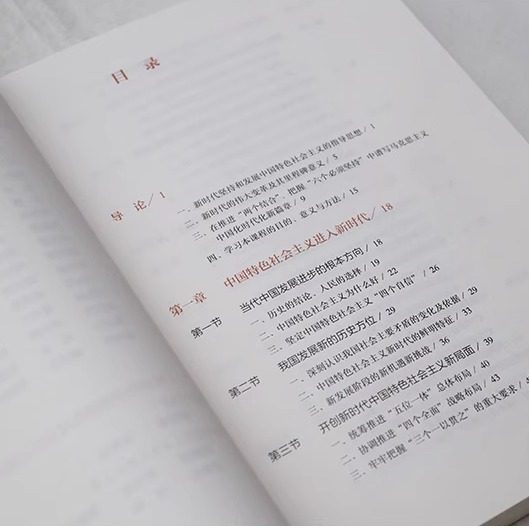 目 录
导 论/1
一、新时代坚持和发展中国特色社会主义的指导思想/1
二、新时代的伟大变革及其里程碑意义/5
三、在推进“两个结合”、把握“六个必须坚持”中谱写马克思主义
中国化时代化新篇章/9
四、学习本课程的目的、意义与方法/15
第一章 中国特色社会主义进入新时代/18
第一节 当代中国发展进步的根本方向/18
一、历史的结论、人民的选择/19
二、中国特色社会主义为什么好/22
三、坚定中国特色社会主义“四个自信”/26
第二节 我国发展新的历史方位/29
一、深刻认识我国社会主要矛盾的变化及依据/29
二、中国特色社会主义新时代的鲜明特征/33
三、新发展阶段的新机遇新挑战/36
第三节 开创新时代中国特色社会主义新局面/39
一、统筹推进“五位一体”总体布局/40
二、协调推进“四个全面”战略布局/43
三、牢牢把握“三个一以贯之”的重大要求/